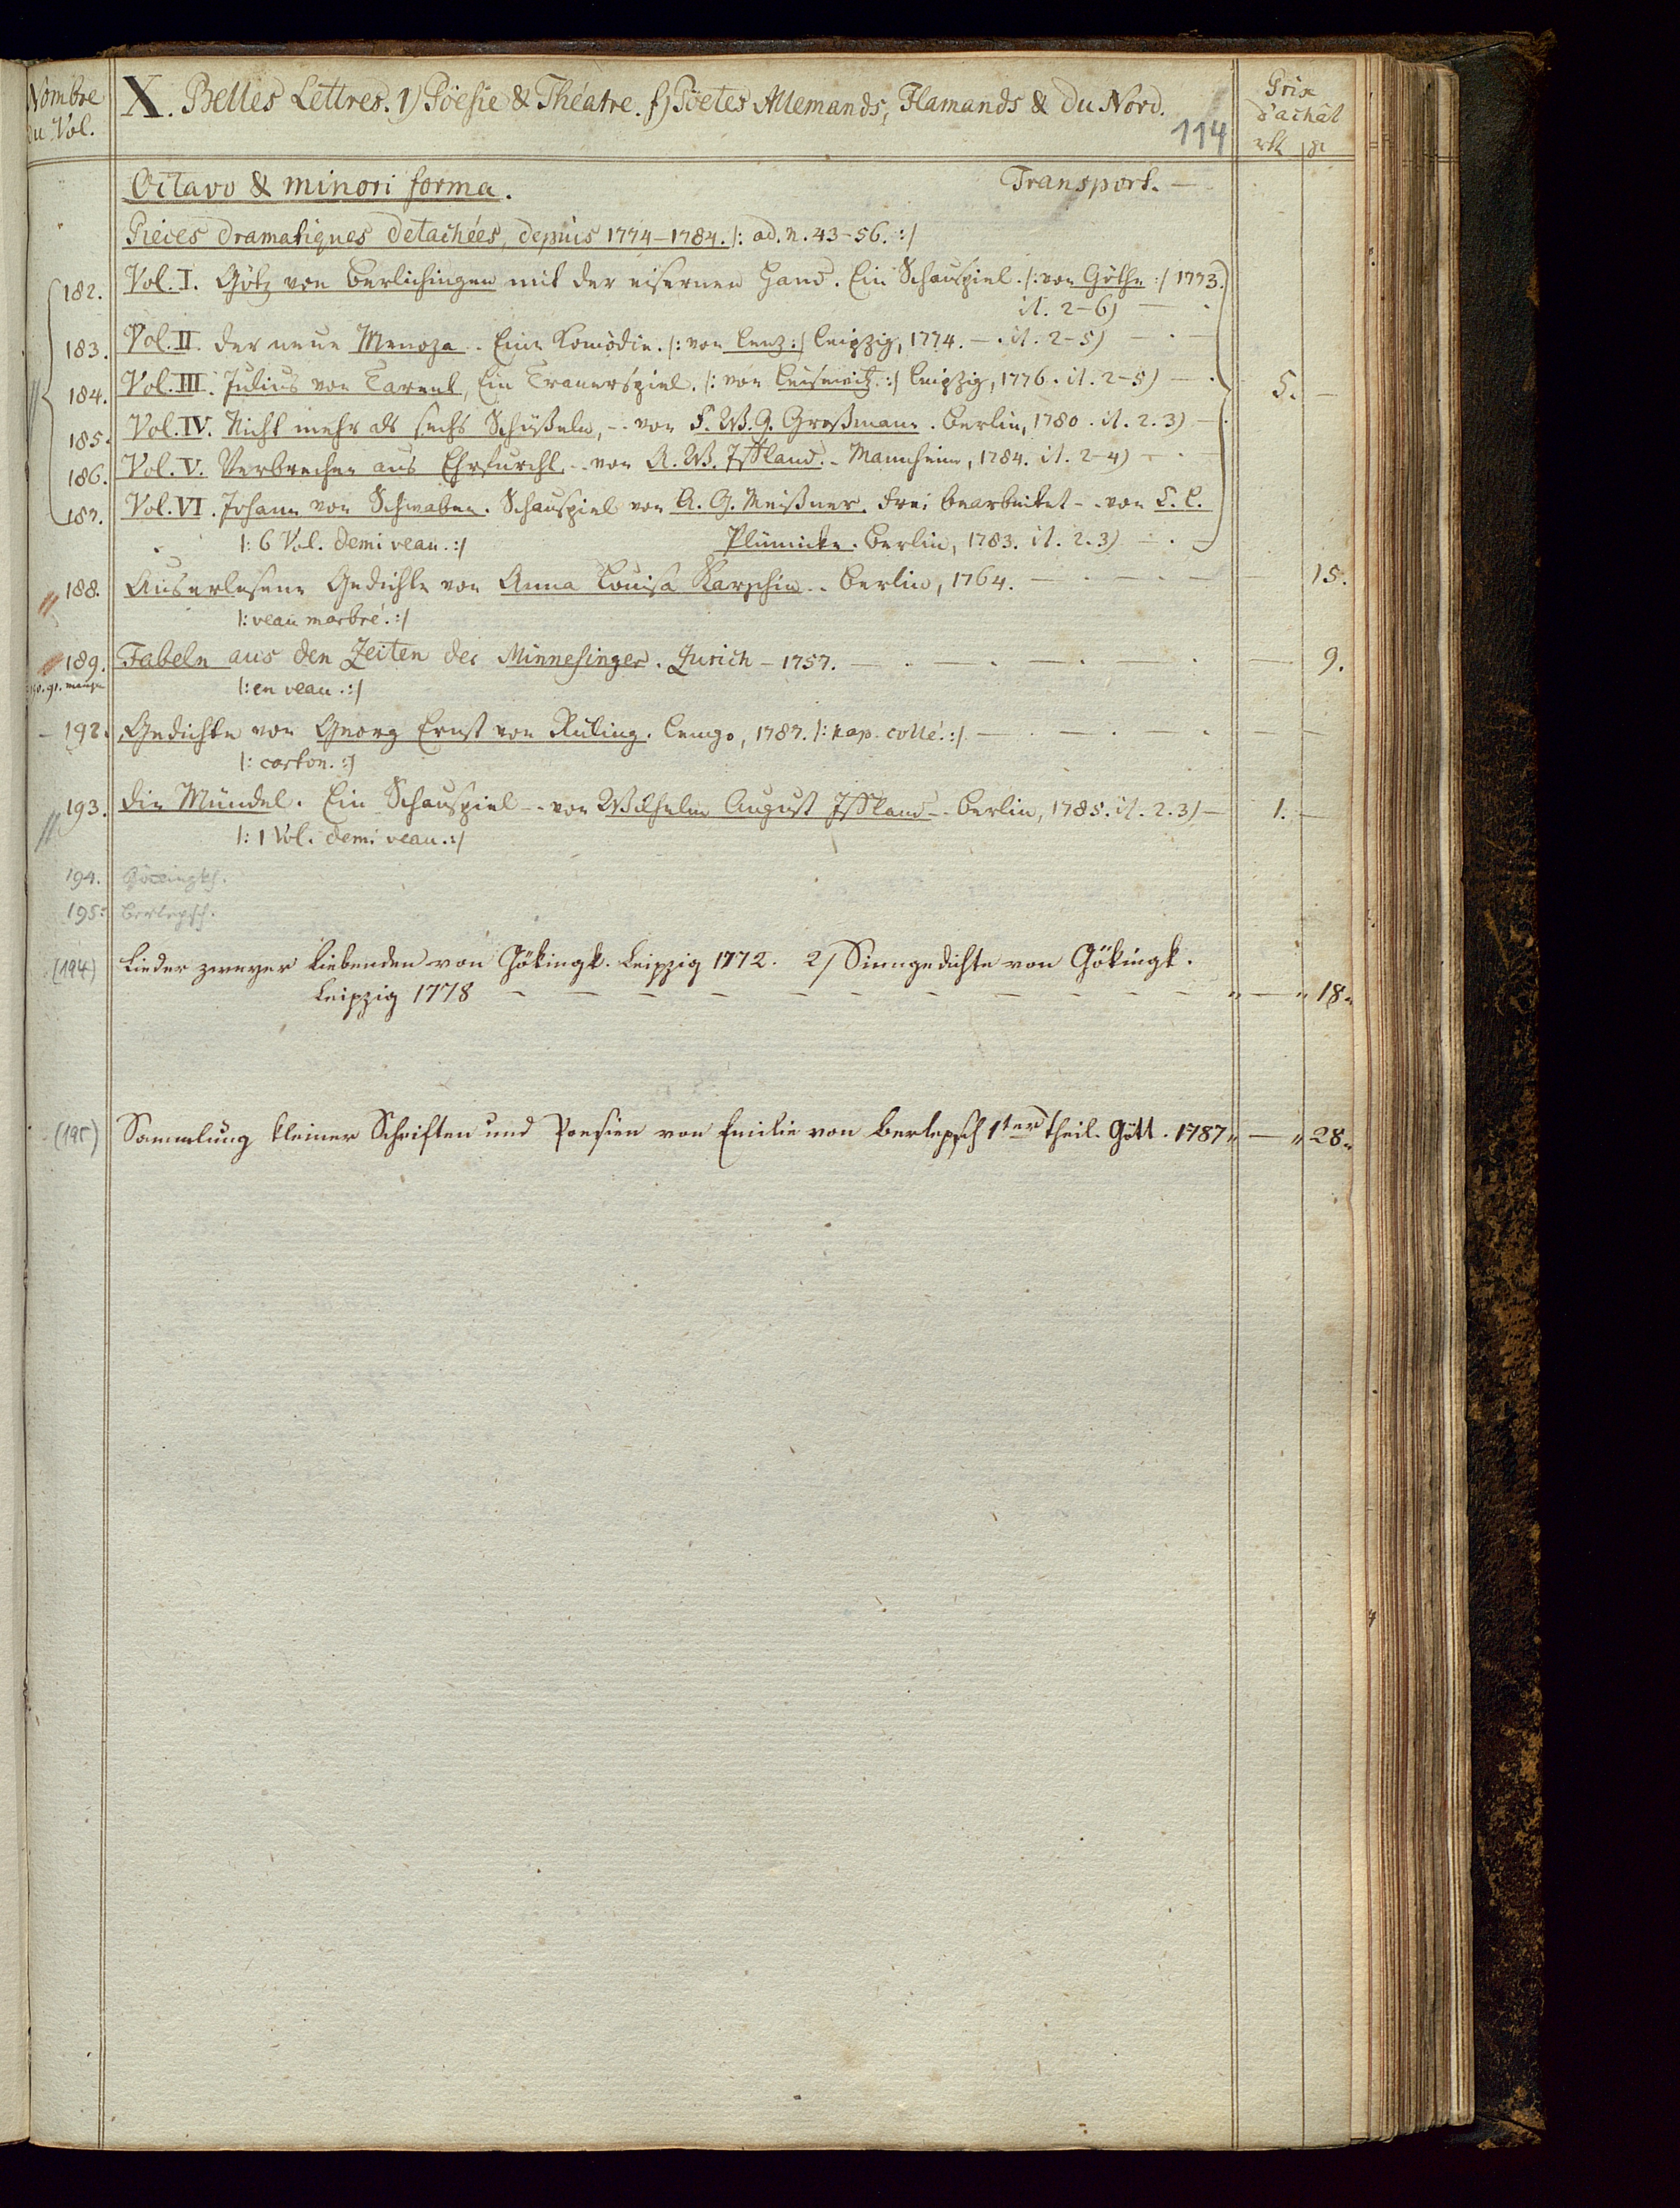 Nombre du Vol.
X. Belles Lettres. 1) Pöesie & Théatre. f) Pöetes Allemands, Flamands & du Nord.
114
Prix d'achât
Octavo & minori forma. Transport. —
Pieces dramatiques detachées, depuis 1774–1784. /: ad. n. 43–56. :/
182. Vol. I. Götz von Berlichingen mit der eisernen Hand. Ein Schauspiel. /: von Göthe :/ 1773.
it. 2–6) —
183. Vol. II. Der neue Menoza. Eine Komödie. /: von Lenz :/ Leipzig, 1774. — it. 2–5) —
184. Vol. III. Julius von Tarent, Ein Trauerspiel. /: von Leisewitz. :/ Leipzig, 1776. it. 2–5) — 5. —
185. Vol. IV. Nicht mehr als sechs Schüßeln, -. von F. W. G. Großmann. Berlin, 1780. it. 2. 3) —
186. Vol. V. Verbrechen aus Ehrfurcht, -. von A. W. Iffland. - Mannheim, 1784. it. 2–4) —
187. Vol. VI. Johann von Schwaben. Schauspiel von A. G. Meißner. Frei bearbeitet -. von C. C.
/: 6 Vol. demi veau. :/ Plümicke. Berlin, 1783. it. 2. 3) —
188. Auserlesene Gedichte von Anna Louisa Karschin. - Berlin, 1764. — 15.
/: veau marbré. :/
189. Fabeln aus den Zeiten der Minnesinger. Zurich – 1757. — 9.
/: en veau. :/
192. Gedichte von Georg Ernst von Rüling. Lemgo, 1787. /: pap. collé. :/ —
/: carton. :/
193. Die Mündel. Ein Schauspiel -. von Wilhelm August Iffland -. Berlin, 1785. it. 2. 3) — 1. —
/: 1 Vol. demi veau. :/
194. Göckingk.
195. Berlepsch.
(194) Lieder zweyer Liebenden von Gökingk. Leipzig 1772. 2/ Sinngedichte von Gökingk.
Leipzig 1778 — " — " 18 "
(195) Sammlung kleiner Schriften und Poesien von Emilie von Berlepsch 1ter Theil. Gött. 1787 " — " 28 "